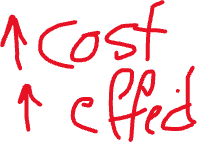 ↑ cost
↑ effed